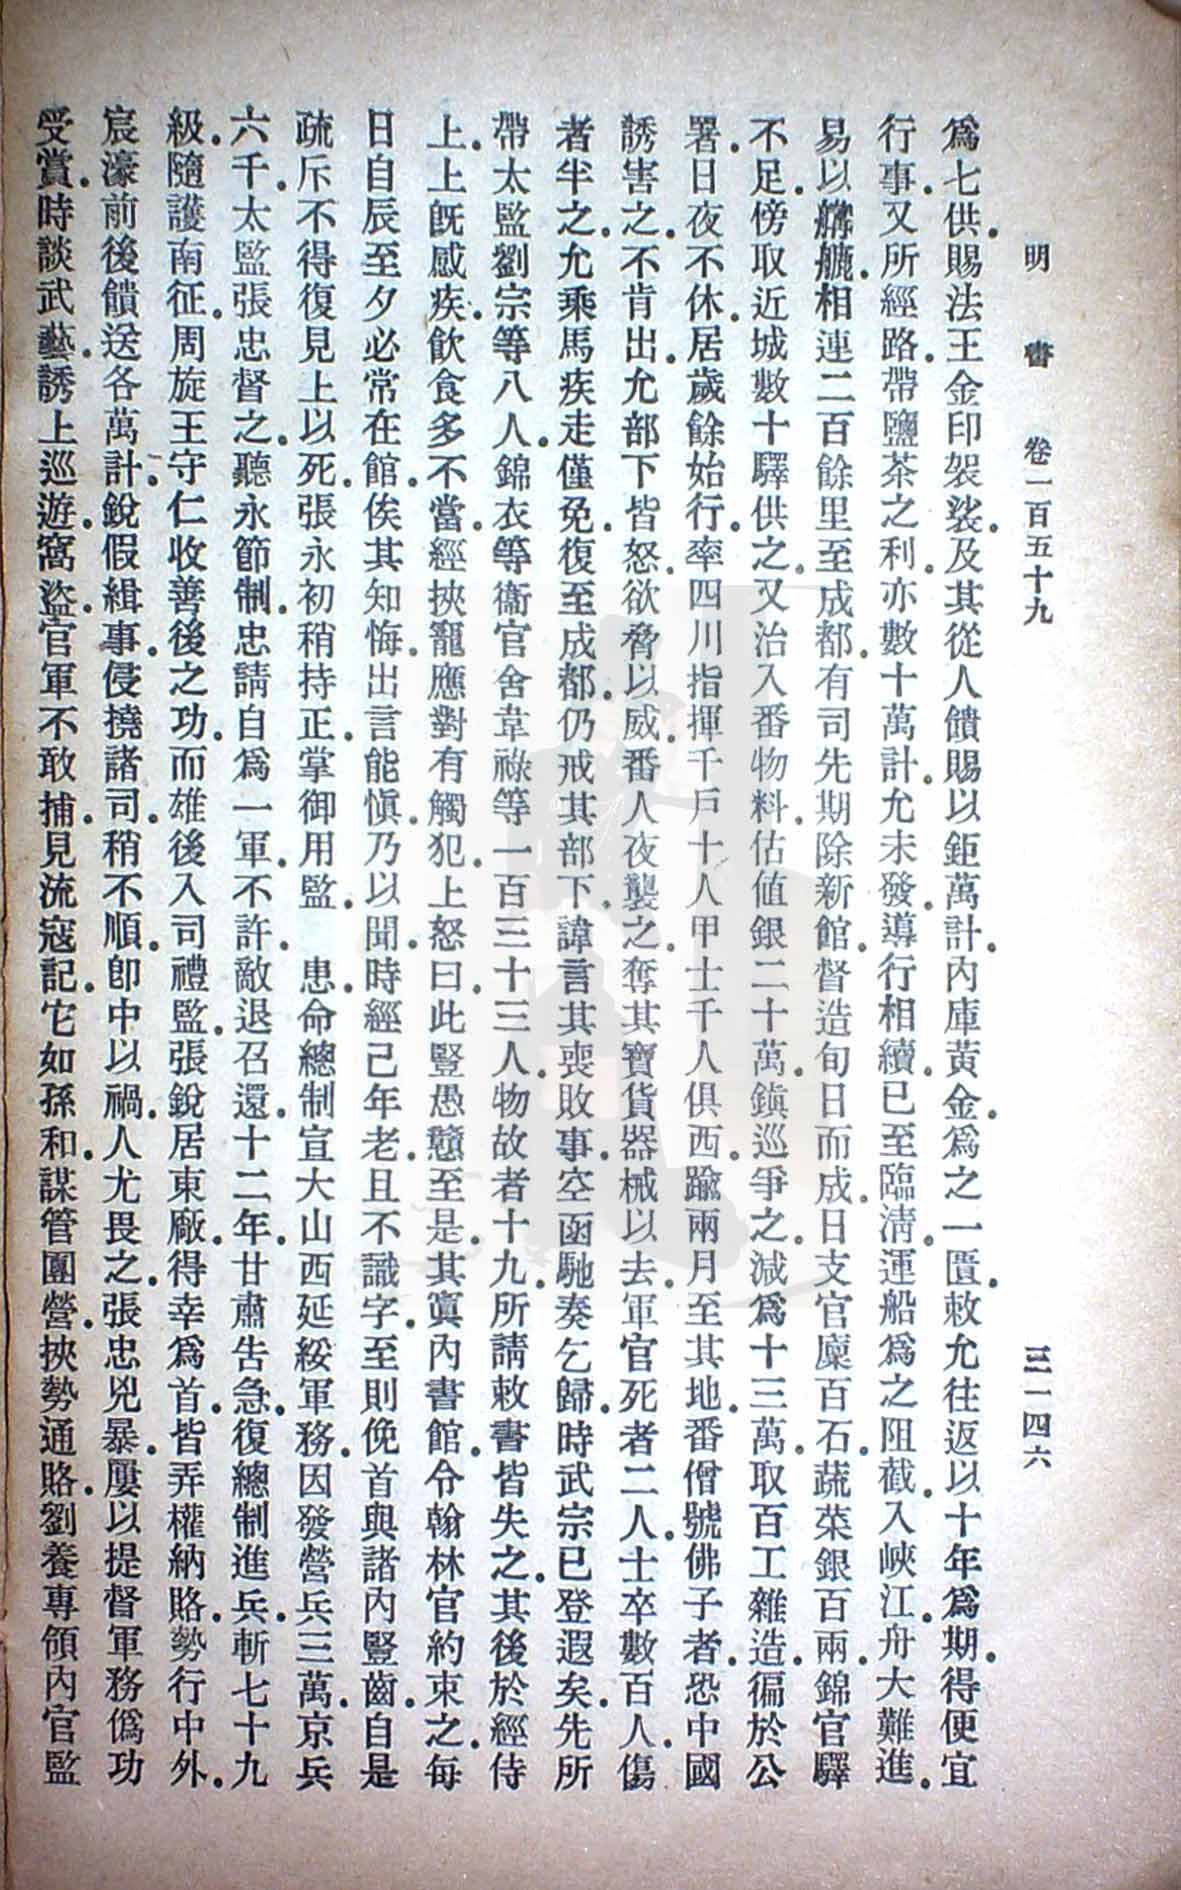 明書 卷一百五十九 三一四六
爲七供。賜法王金印袈裟。及其從人饋賜以鉅萬計。內庫黃金。爲之一匱。敕允往返以十年爲期。得便宜
行事。又所經路。帶鹽茶之利。亦數十萬計。允未發。導行相續。已至臨淸。運船爲之阻截。入峽江。舟大難進。
易以艣。相連二百餘里。至成都。有司先期除新館。督造旬日而成。日支官廩百石。蔬菜銀百兩。錦官驛
不足。傍取近城數十驛供之。又治入番物料。估値銀二十萬。鎭巡爭之。減爲十三萬。取百工雜造。徧於公
署。日夜不休。居歲餘始行。率四川指揮千戶十人甲士千人俱西。踰兩月至其地。番僧號佛子者。恐中國
誘害之。不肯出。允部下皆怒。欲脅以威。番人夜襲之。奪其寶貨器械以去。軍官死者二人。士卒數百人。傷
者半之。允乘馬疾走僅免。復至成都。仍戒其部下。諱言其喪敗事。空函馳奏乞歸。時武宗已登遐矣。先所
帶太監劉宗等八人。錦衣等衞官舍韋祿等一百三十三人。物故者十九。所請敕書皆失之。其後於經侍
上。上旣感疾。飮食多不當。經挾寵應對有觸犯。上怒曰。此豎愚戇至是。其寘內書館。令翰林官約束之。每
日自辰至夕必常在館。俟其知悔。出言能愼。乃以聞。時經已年老。且不識字。至則俛首與諸內豎齒。自是
疏斥不得復見上以死。張永初稍持正。掌御用監。患。命總制宣大山西延綏軍務。因發營兵三萬。京兵
六千。太監張忠督之。聽永節制。忠請自爲一軍。不許。敵退召還。十二年。甘肅告急。復總制進兵。斬七十九
級。隨護南征。周旋王守仁收善後之功。而雄後入司禮監。張銳居東廠。得幸爲首。皆弄權納賂。勢行中外。
宸濠前後饋送各萬計。銳假緝事。侵撓諸司。稍不順。卽中以禍。人尤畏之。張忠兇暴。屢以提督軍務僞功
受賞。時談武藝。誘上巡遊。窩盜。官軍不敢捕。見流寇記。它如孫和。謀管團營。挾勢通賂。劉養專領內官監